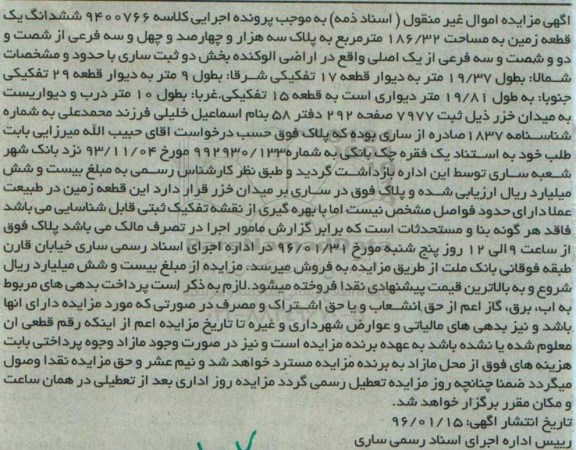 آگهی مزایده اموال غیر منقول ( اسناد ذمه) به موجب پرونده اجرایی کلاسه ۹۴۰۰۷۶۶ ششدانگ یک
قطعه زمین به مساحت ۱۸۶/۳۲ مترمربع به پلاک سه هزار و چهارصد و چهل و سه فرعی از شصت و
دو و شصت و سه فرعی از یک اصلی واقع در اراضی الوکنده بخش دو ثبت ساری با حدود و مشخصات
شمالا: بطول ۱۹/۳۷ متر به دیوار قطعه ۱۷ تفکیکی شرقا: بطول ۹ متر به دیوار قطعه ۲۹ تفکیکی
جنوبا: به طول ۱۹/۸۱ متر دیواری است به قطعه ۱۵ تفکیکی.غربا: بطول ۱۰ متر درب و دیواریست
به میدان خزر ذیل ثبت ۷۹۷۷ صفحه ۲۹۲ دفتر ۵۸ بنام اسماعیل خلیلی فرزند محمدعلی به شماره
شناسنامه ۱۸۳۷ صادره از ساری بوده که پلاک فوق حسب درخواست اقای حبیب الله میرزایی بابت
طلب خود به استناد یک فقره چک بانکی به شماره ۹۹۲۹۳۰/۱۳۳ مورخ ۹۳/۱۱/۰۴ نزد بانک شهر
شعبه ساری توسط این اداره بازداشت گردید و طبق نظر کارشناس رسمی به مبلغ بیست و شش
میلیارد ریال ارزیابی شده و پلاک فوق در ساری بر میدان خزر قرار دارد این قطعه زمین در طبیعت
عملا دارای حدود فواصل مشخص نیست اما با بهره گیری از نقشه تفکیک ثبتی قابل شناسایی می باشد
فاقد هر گونه بنا و مستحدثات است که برابر گزارش مامور اجرا در تصرف مالک می باشد پلاک فوق
از ساعت ۹ الی ۱۲ روز پنج شنبه مورخ ۹۶/۰۱/۳۱ در اداره اجرای اسناد رسمی ساری خیابان قارن
طبقه فوقانی بانک ملت از طریق مزایده به فروش میرسد. مزایده از مبلغ بیست و شش میلیارد ریال
شروع و به بالاترین قیمت پیشنهادی نقدا فروخته میشود.لازم به ذکر است پرداخت بدهی های مربوط
به اب، برق، گاز اعم از حق انشعاب و یا حق اشتراک و مصرف در صورتی که مورد مزایده دارای انها
باشد و نیز بدهی های مالیاتی و عوارض شهرداری و غیره تا تاریخ مزایده اعم از اینکه رقم قطعی ان
معلوم شده یا نشده باشد به عهده برنده مزایده است و نیز در صورت وجود مازاد وجوه پرداختی بابت
هزینه های فوق از محل مازاد به برنده مزایده مسترد خواهد شد و نیم عشر و حق مزایده نقدا وصول
میگردد ضمنا چنانچه روز مزایده تعطیل رسمی گردد مزایده روز اداری بعد از تعطیلی در همان ساعت
و مکان مقرر برگزار خواهد شد.
تاریخ انتشار اگهی: ۹۶/۰۱/۱۵
رییس اداره اجرای اسناد رسمی ساری